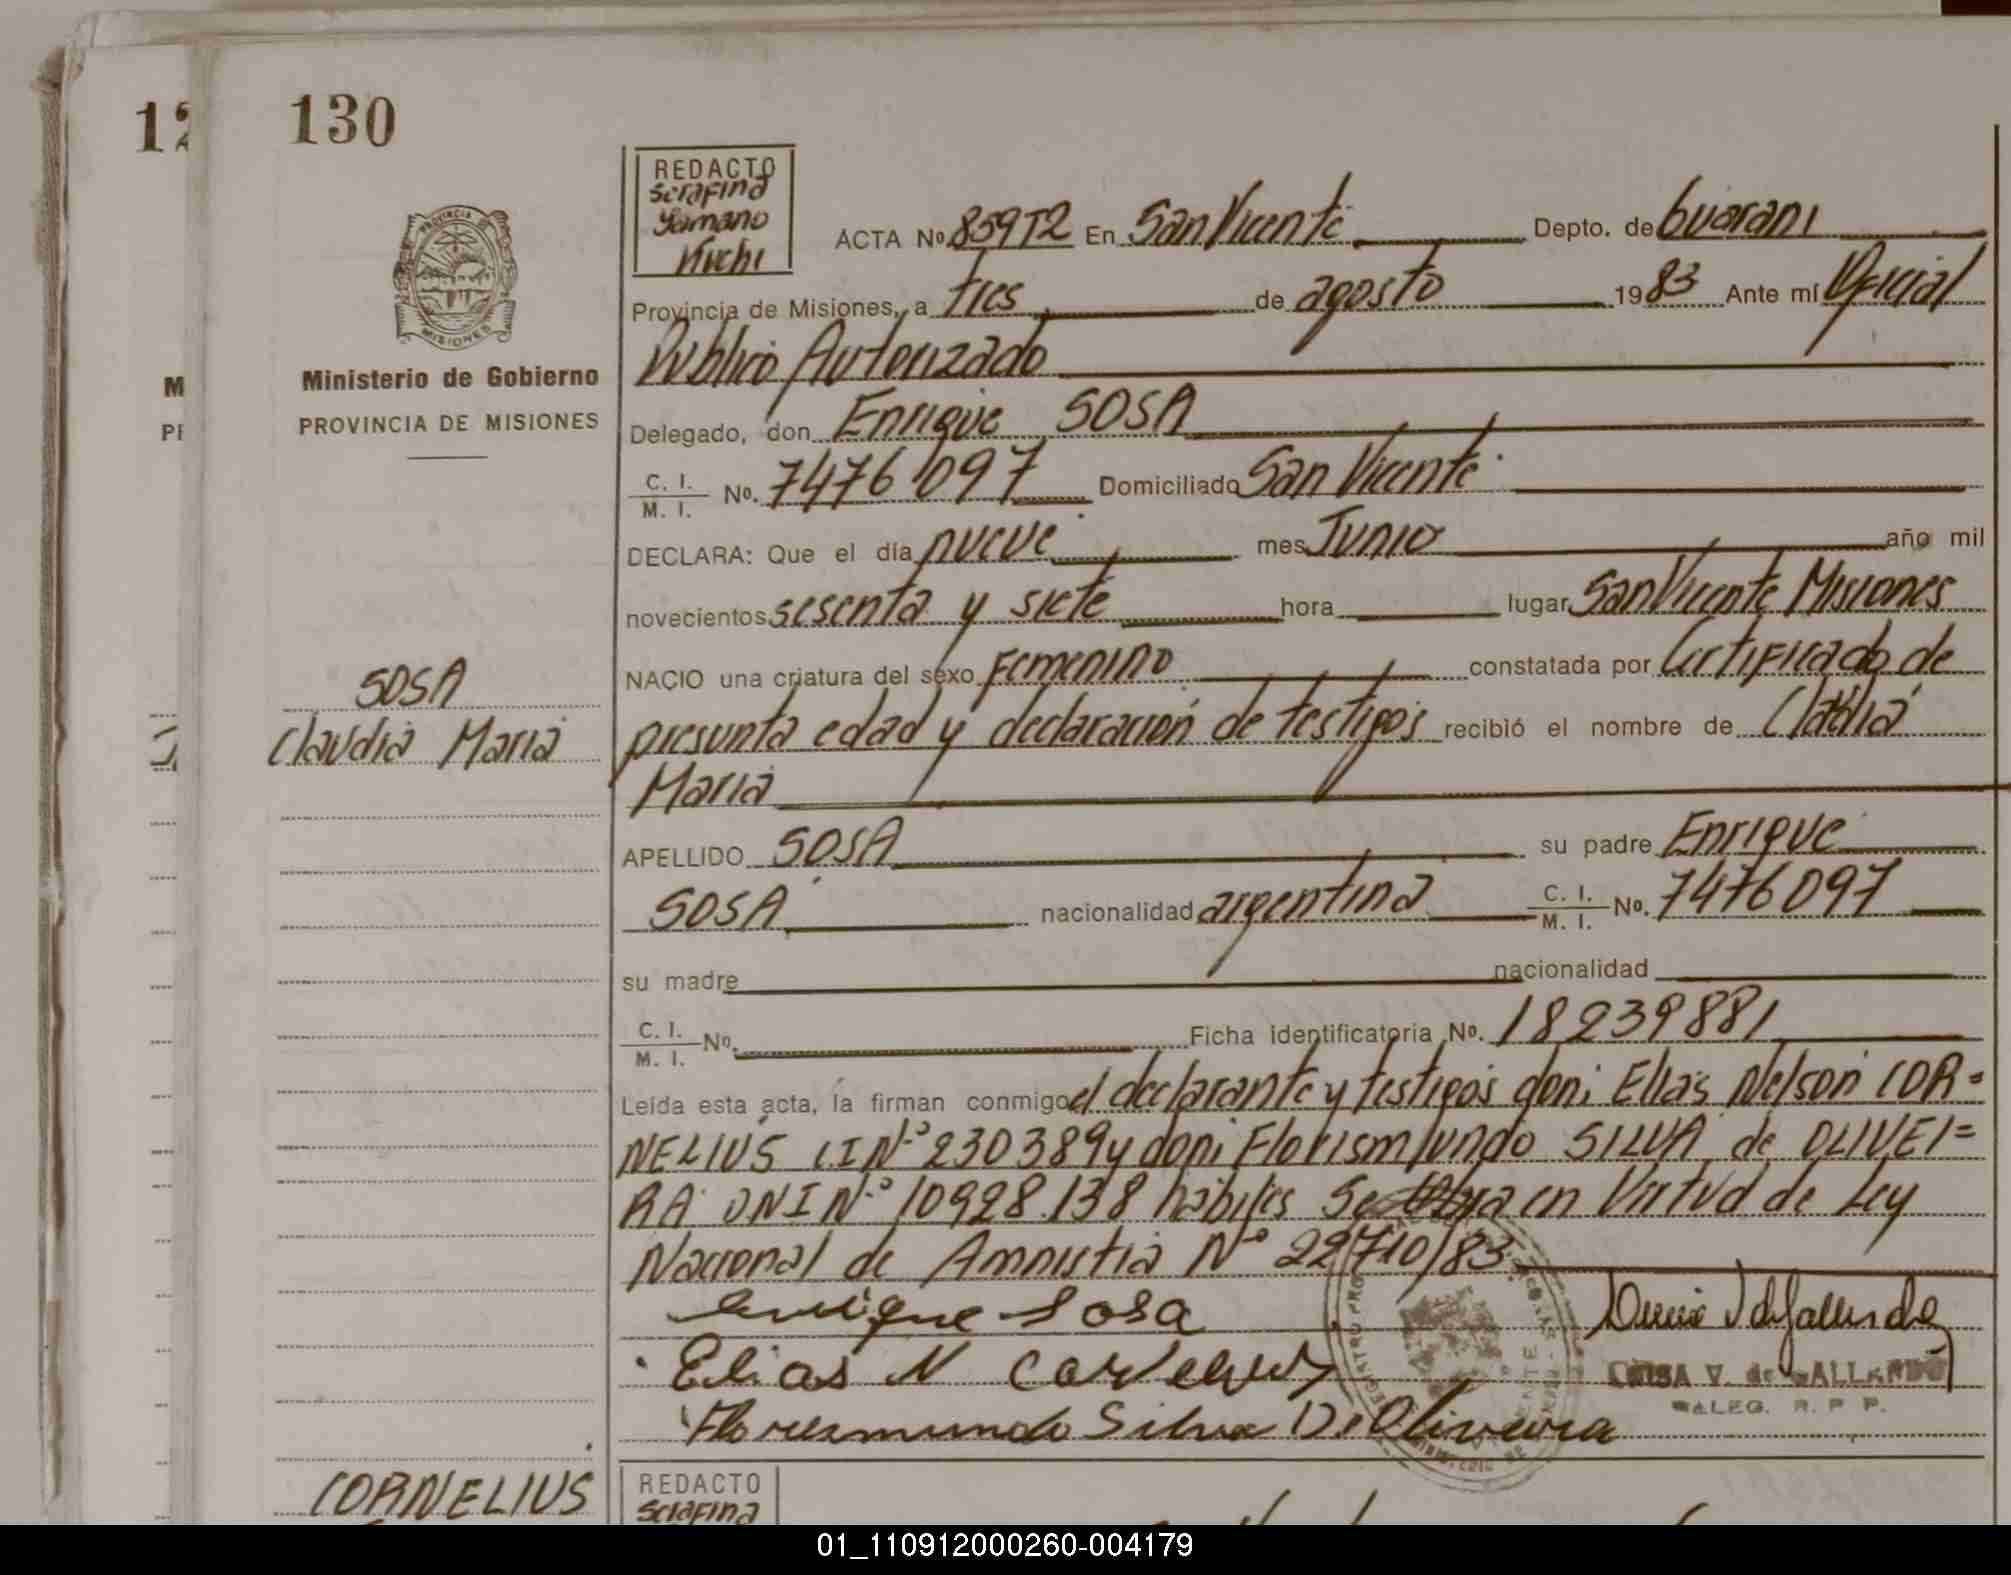 12
130
REDACTO
Serafina
Yamano
Kuchi
ACTA Nº 859T2 En San Vicente Depto. de Guarani
PROVINCIA
MISIONES
Provincia de Misiones, a tres de agosto 1983 Ante mí Oficial
Publico Autorizado
Ministerio de Gobierno
PROVINCIA DE MISIONES
M
PI
Delegado, don Enrique SOSA
C. I.
M. I. No. 7476097 Domiciliado San Vicente
DECLARA: Que el día nueve mes Junio año mil
novecientos sesenta y siete hora lugar San Vicente Misiones
NACIO una criatura del sexo Femenino constatada por Certificado de
SOSA
Claudia Maria
presunta edad y declaración de testigos recibió el nombre de Claudia
Maria
APELLIDO SOSA su padre Enrique
SOSA nacionalidad argentina C. I.
M. I. No. 7476097
su madre nacionalidad
C. I.
M. I. No. Ficha identificatoria No. 18239881
Leída esta acta, la firman conmigo el declarante y testigos don: Elias Nelson COR=
NELIUS CI Nº 230389 y don: Florismundo SILVA de OLIVEI=
RA DNI Nº 10928.138 hábiles Se labra en Virtud de Ley
Nacional de Amnistia Nº 22710/83
enrique Sosa
Elias N Cornelius
Floresmundo Silva De Oliveira
LUISA V. de GALLARDO
DALEG. R. P. P.
CORNELIUS
REDACTO
Serafina
01_110912000260-004179